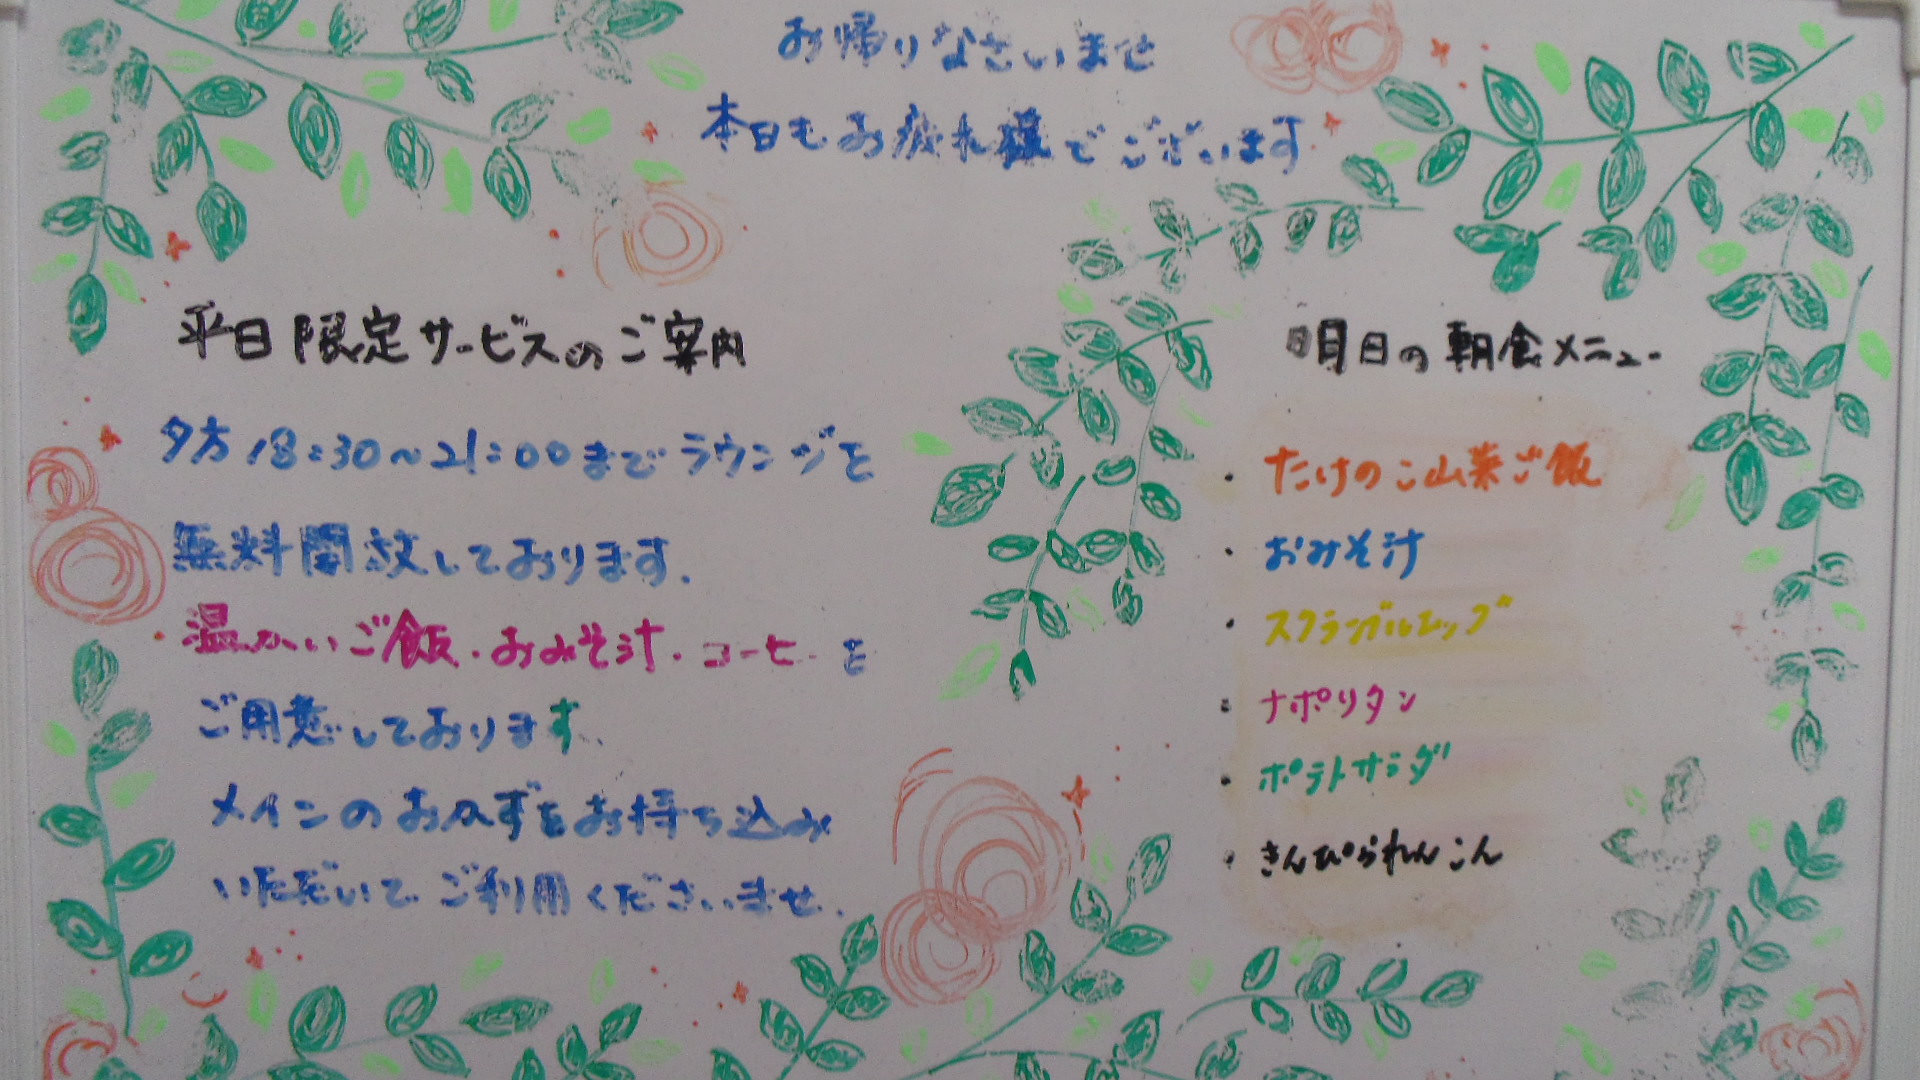 お帰りなさいませ
本日もお疲れ様でございます
平日限定サービスのご案内
夕方18:30~21:00までラウンジを
無料開放しております.
温かいご飯・おみそ汁・コーヒーを
ご用意しております.
メインのおかずをお持ち込み
いただいてご利用くださいませ.
明日の朝食メニュー
・たけのこ山菜ご飯
・おみそ汁
・スクランブルエッグ
・ナポリタン
・ポテトサラダ
・きんぴられんこん